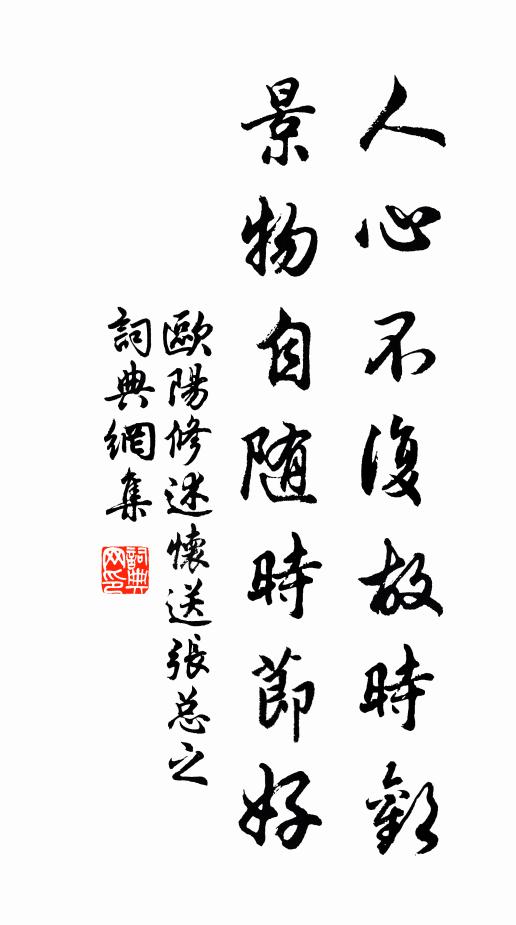 人心不復故時歡
景物自随時節好
歐陽修述懷送張總之
詞典網集
詞典网印